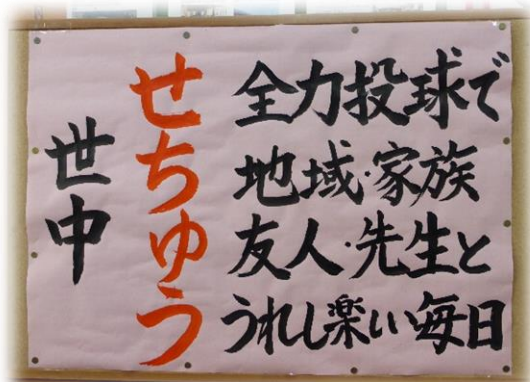 全力投球で
地域・家族
友人・先生と
うれし楽い毎日
せちゅう
世中